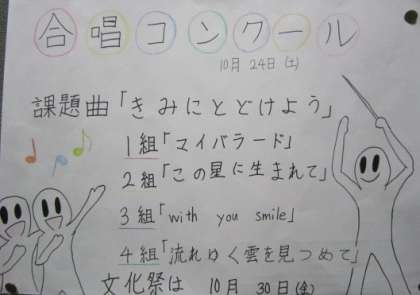 合唱コンクール
10月 24日 (土)
課題曲「きみにとどけよう」
1組「マイバラード」
2組「この星に生まれて」
3組「with you smile」
4組「流れゆく雲を見つめて」
文化祭は 10月 30日(金)